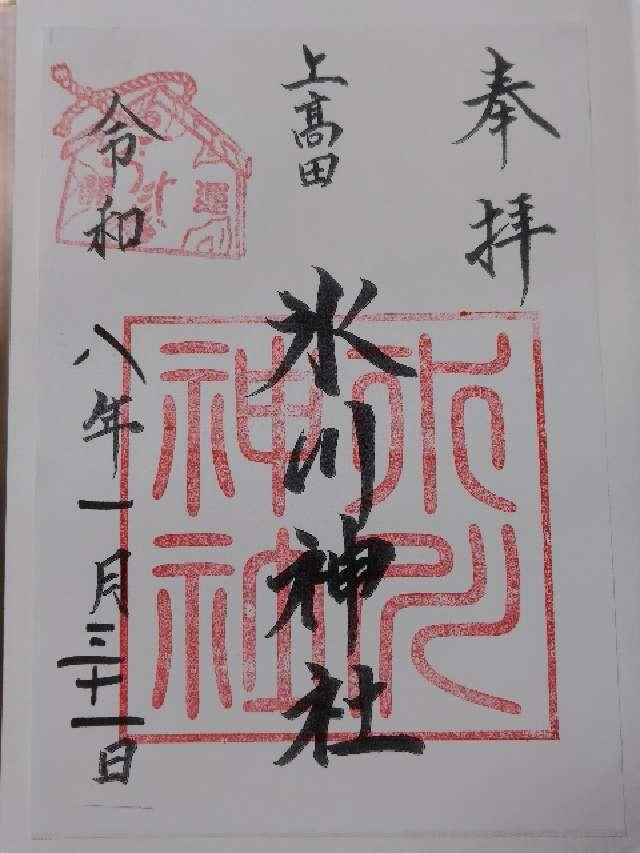 奉拝
上髙田
氷川神社
氷川
神社
令和八年一月三十一日